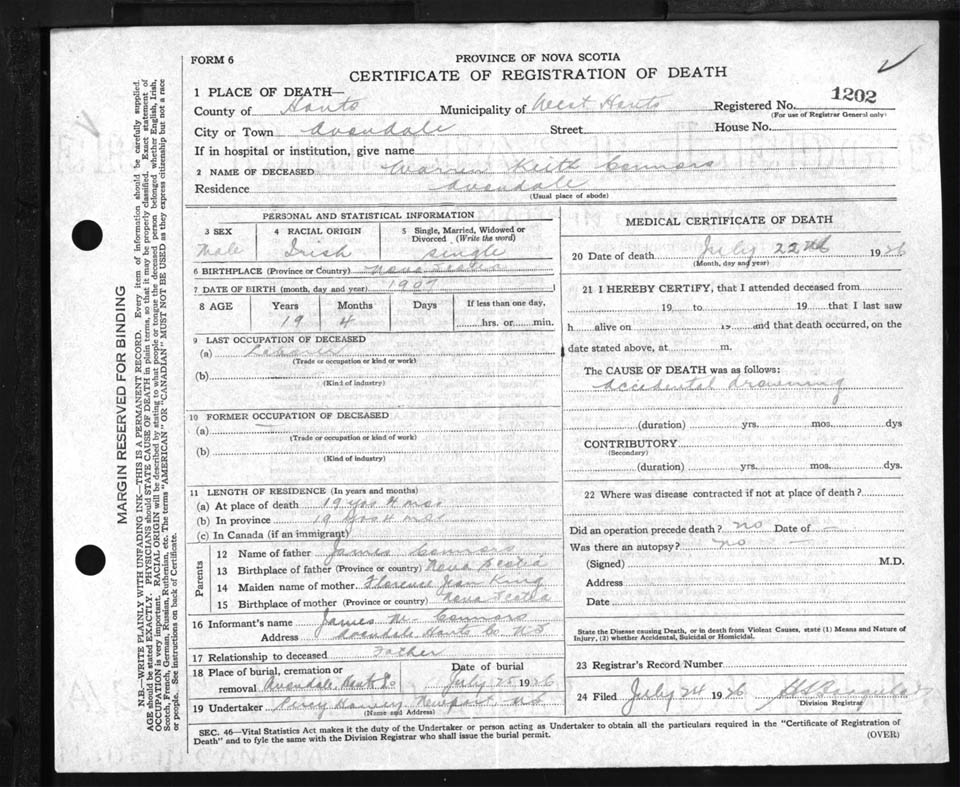 FORM 6
PROVINCE OF NOVA SCOTIA
CERTIFICATE OF REGISTRATION OF DEATH
1 PLACE OF DEATH—
County of Hants Municipality of West Hants Registered No. 1202
(For use of Registrar General only)
City or Town Avondale Street House No.
If in hospital or institution, give name
2 NAME OF DECEASED Warren Keith Connors
Residence Avondale
(Usual place of abode)
PERSONAL AND STATISTICAL INFORMATION
3 SEX 4 RACIAL ORIGIN 5 Single, Married, Widowed or Divorced (Write the word)
Male Irish single
6 BIRTHPLACE (Province or Country) Nova Scotia
7 DATE OF BIRTH (month, day and year) 1907
8 AGE Years Months Days If less than one day,
19 4 hrs. or min.
9 LAST OCCUPATION OF DECEASED
(a) Laborer
(Trade or occupation or kind or work)
(b)
(Kind of industry)
10 FORMER OCCUPATION OF DECEASED
(a)
(Trade or occupation or kind of work)
(b)
(Kind of industry)
11 LENGTH OF RESIDENCE (In years and months)
(a) At place of death 19 yrs 4 mos
(b) In province 19 yrs 4 mos
(c) In Canada (if an immigrant)
Parents
12 Name of father James Connors
13 Birthplace of father (Province or country) Nova Scotia
14 Maiden name of mother Florence Jean King
15 Birthplace of mother (Province or country) Nova Scotia
16 Informant's name James W. Connors
Address Avondale Hants Co. N.S
17 Relationship to deceased Father
18 Place of burial, cremation or Date of burial
removal Avondale Hants Co July 25 1926
19 Undertaker Percy Harvey Newport N.S
(Name and Address)
MEDICAL CERTIFICATE OF DEATH
20 Date of death July 22nd 1926
(Month, day and year)
21 I HEREBY CERTIFY, that I attended deceased from
19 to 19 that I last saw
h alive on 19 and that death occurred, on the
date stated above, at m.
The CAUSE OF DEATH was as follows:
Accidental drowning
(duration) yrs. mos. dys
CONTRIBUTORY
(Secondary)
(duration) yrs. mos. dys.
22 Where was disease contracted if not at place of death?
Did an operation precede death? no Date of —
Was there an autopsy? no —
(Signed) M.D.
Address
Date
State the Disease causing Death, or in death from Violent Causes, state (1) Means and Nature of
Injury, (2) whether Accidental, Suicidal or Homicidal.
23 Registrar's Record Number
24 Filed July 24 1926
Division Registrar
SEC. 46—Vital Statistics Act makes it the duty of the Undertaker or person acting as Undertaker to obtain all the particulars required in the "Certificate of Registration of
Death" and to fyle the same with the Division Registrar who shall issue the burial permit. (OVER)
MARGIN RESERVED FOR BINDING
N.B.—WRITE PLAINLY WITH UNFADING INK—THIS IS A PERMANENT RECORD. Every item of information should be carefully supplied.
AGE should be stated EXACTLY. PHYSICIANS should STATE CAUSE OF DEATH in plain terms, so that it may be properly classified. Exact statement of
OCCUPATION is very important. RACIAL ORIGIN will be described by stating to what people or tongue the deceased person belonged whether English, Irish,
Scotch, French, German, Russian, Ruthenian, etc. The terms "AMERICAN" OR "CANADIAN" MUST NOT BE USED as they express citizenship but not a race
or people. See instructions on back of Certificate.